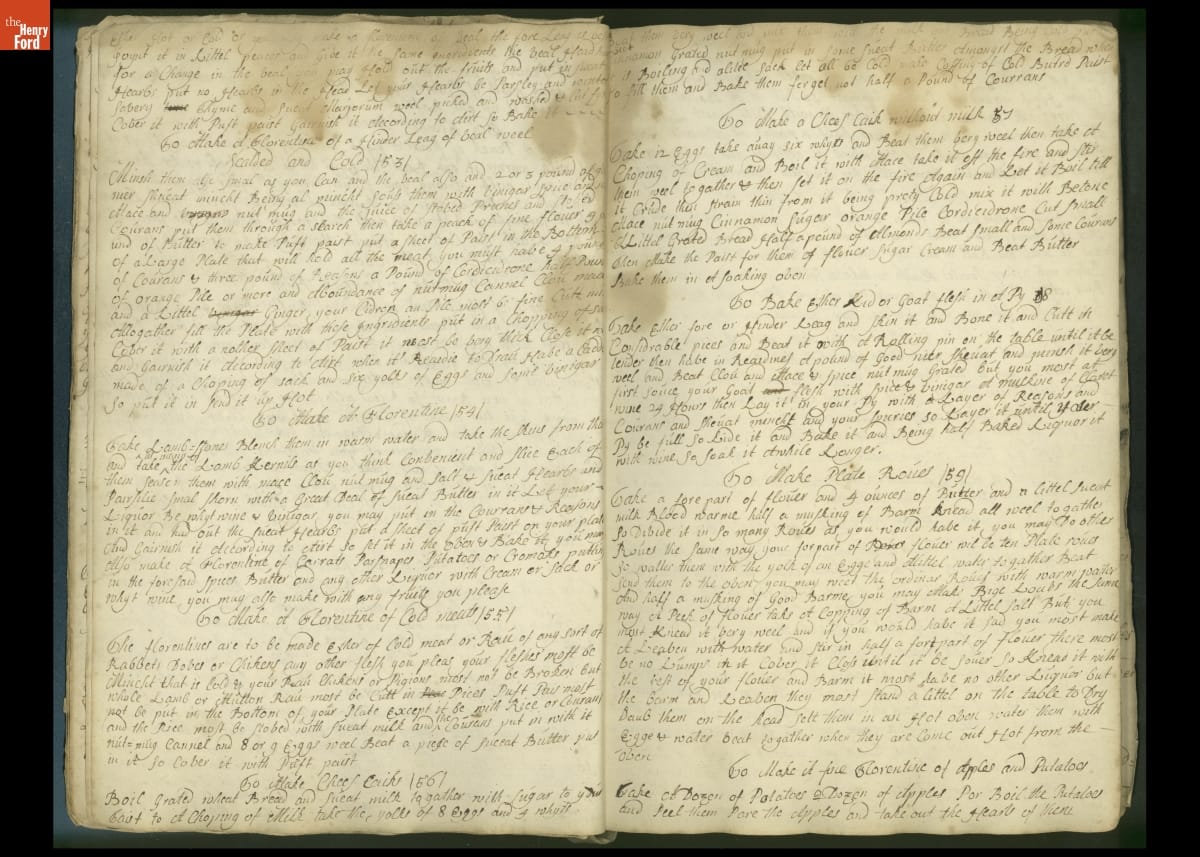 the
Henry
Ford
Ether Hot or Cold or you the fore Leag of
joynt it in Littel peaces and Give it the same ingredients the veal Head
for a Change in the veal may Hold out the fruits and put in sweat
Hearbs put no Hearbs in the Head Let your Hearbs be Parsley and winter
savery thyme and sweat Marjorum weel picked and washed & Cut
Cover it with Puft paist Gairnish it according to Airt so Bake it
To Make A Florentine of a Hinder Leag of veal weel
Scalded and Cold /53/
Minsh them als smal as you Can and the veal also and 2 or 3 pound of
mer Shneat muncht Being al muncht souse them with vinigar spice
Mace and nut mug and the Juice of stoved Prunes and stofed
Courans put them through a search then take a peack of fine flower &
und of Butter to make Puft paist put a sheet of Paist in the Bottom
of a Large Plate that will hold all the meat you must have 4 pound
of Courans & three pound of Reasons a Pound of Cordicidrone half Pound
of orange Pile or more and Aboundance of nut mug Cannel Clow mace
and a Littel Ginger, your Cidron an Pile most be fine Cutt mix
Altogather fill the Plate with those Ingridients put in a Chopping of
Cover it with a nother sheet of Paist it most be very thick Close it
and Gairnish it according to Airt when it Readie to Draw Have a
made of a Choping of sack and six yolks of Eggs and some vinigar
so put it in send it up Hot
To Make A Florentine /54/
Take Lamb-stones Blench them in warm water and take the skins from
and take the Lamb Kernils as you think Convenient and slice Each of
them season them with mace Clow nut mug and salt & sweat Hearbs and
Parsilie smal shorn with a Great Deal of sweat Butter in it Let your
Liquor Be whyt wine & vinigar, you may put in the Courans & Reasons
in it and hid out the sweat Hearbs put a sheet of puft Paist on your plate
and Gairnish it according to Airt so set it in the oven & Bake it, you may
also make A Florentine of Carrats Parsnapes Putatoes or putting
in the foresaid spices Butter and any other Liquor with Cream or sack or
whyt wine you may also make with any fruits you please
To Make A Florentine of Cold meats /55/
The florentines are to be made Ether of Cold meat or Raw of any sort of
Rabbets Doves or Chikens any other flesh you pleas your fleshes most be
Mincht that is Cold & your Raw Chikens or Pigions most not be Broken but
whole Lamb or Mutton Raw most be Cutt in Pices Puft Pais must
not be put in the Bottom of your Plate Except it be with Rice or Courans
and the Rice most be stoved with sweat milk and the Courans put in with it
nut-mug Cannel and 8 or 9 Eggs weel Beat a piege of sweeat Butter put
in it so Cover it with Puft paist
To Make Chees Caiks /56/
Boil Grated wheat Bread and sweat milk togather with sugar to your
taist to A Choping of Milk take the yolks of 8 Eggs and 4 whyts
Beat them very weel and mix them with the Bread Being
Cinnamon Grated nut mug put in some sweat Butter Amongst the Bread when
it is Boiling and alitle sack let all be Cold make Coffing of Cold Butrd Paist
to fill them and Bake them forget not half a Pound of Courrans
To Make a Chees Caik without milk 57
Take 12 Eggs take away six whyts and Beat them very weel then take A
Choping of Cream and Boil it with Mace take it off the fire and stir
them weel togather & then set it on the fire Again and Let it Boil till
it Crude then strain thin from it being prety Cold mix it with Betone
Mace nut mug Cinnamon sugar orange Pile Cordicidrone Cut small
A Littel Grated Bread Half a pound of Almonds Beat small and some Courans
then Make the Paist for them of flower sugar Cream and Beat Butter
Bake them in A soaking oven
To Bake Ether Kid or Goat flesh in A Py 58
Take Ether fore or Hinder Leag and skin it and Bone it and Cutt it
Considrable pices and Beat it with A Rolling pin on the table until it be
tender then have in Readines A pound of Good neer Sheuat and minsh it very
weel and Beat Clow and Mace & spice nut mug Grated But you most at
first souce your Goat flesh with spice & vinigar A musking of Claret
wine 24 Hours then Lay it in your Py with A Layer of Reasons and
Courans and Sheuat mincht and your spicries so Layer it until your
Py be full so Lide it and Bake it and Being half Baked Liquor it
with wine so soak it Awhile Longer.
To Make Plate Roues /59/
Take a fore part of flower and 4 ounces of Butter and A littel sweat
milk Blood warme half a musking of Barm Knead all weel togather
so Divide it in so many Roues as you would have it, you may Do other
Roues the same way your forpart of flower will be ten Plate roues
so wash them with the yolk of an Egge and A littel water togather Beat
send them to the oven you may weet the ordinar Roues with warm water
And half a musking of Good Barme, you may Make Bige Loaves the same
way A Peek of flower taks A Copping of Barm A Littel salt But you
most Knead it very weel and if you would have it sad you most make
A Leaven with water and stir in half a fortpart of flower there most
be no Lumps in it Cover it Close until it be sower so Knead it with
the rest of your flower and Barm it most have no other Liquor but
the barm and Leaven they most stand a littel on the table to Dry
Daub them on the Head sett them in an Hot oven water them with
Egge & water beat togather when they are Come out Hot from the
oven
To Make A fine Florentine of Apples and Putatoes
Take A Dozen of Potatoes a Dozen of Apples Par Boil the Putatoes
and Peel them Pare the Apples and take out the Hearts of them